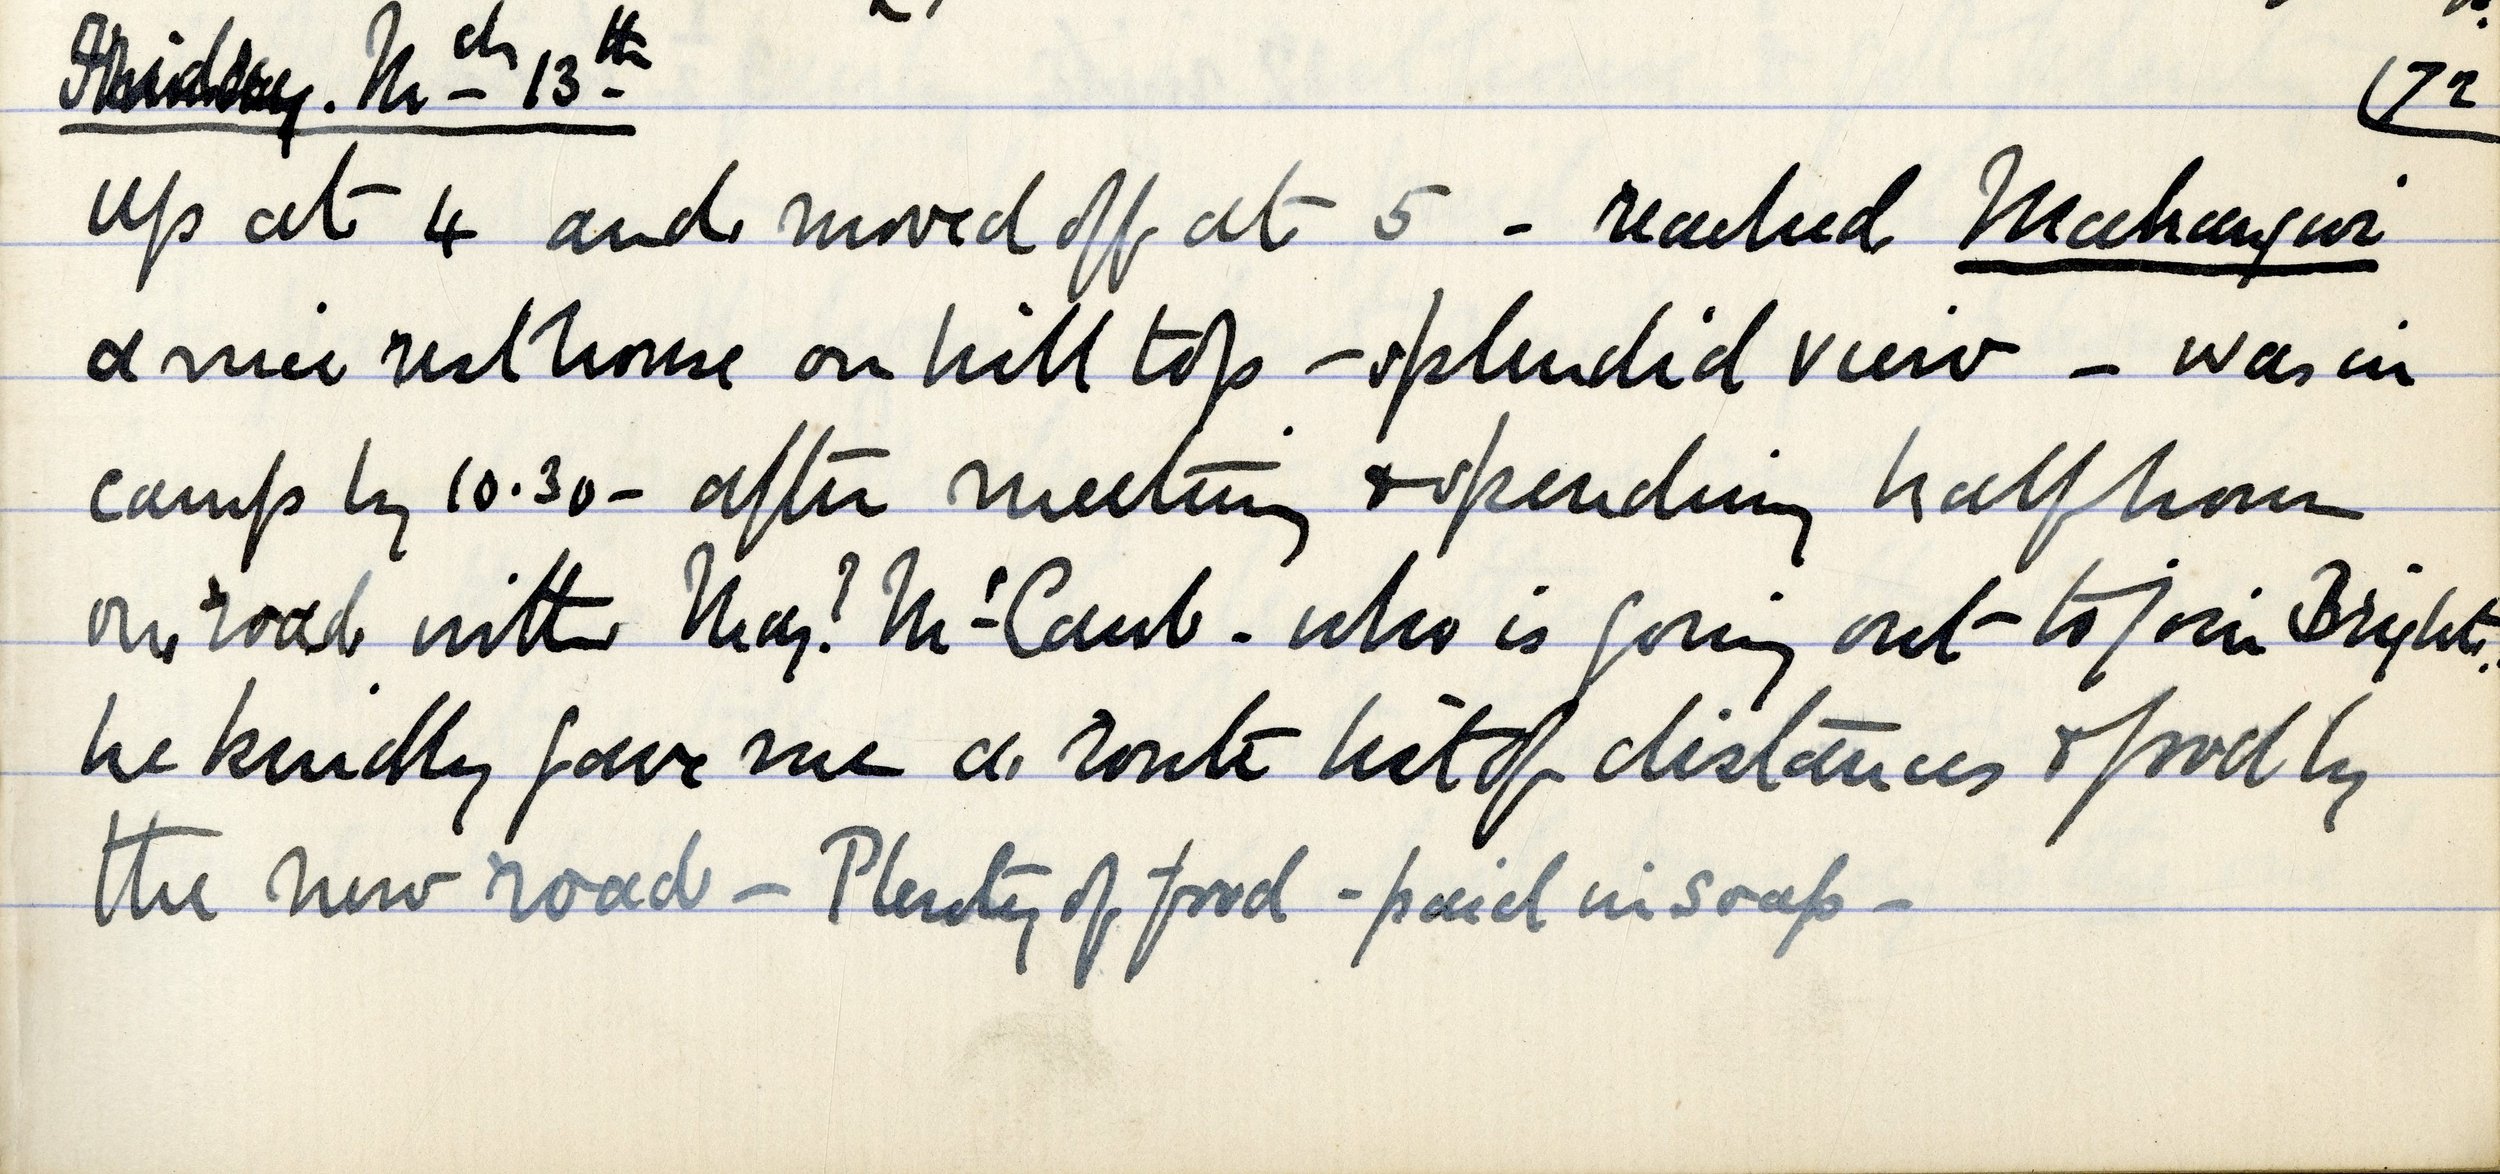 Friday. Mch 13th
(72
up at 4 and moved off at 5 - reached
a nice resthouse on hill top - splendid view - was in
camp by 10.30 - after meeting & spending half hour
on road with Maj! McCaul - who is going out to join Bright.
he kindly gave me a route list of distances & food by
the new road - Plenty of food - paid in soap -